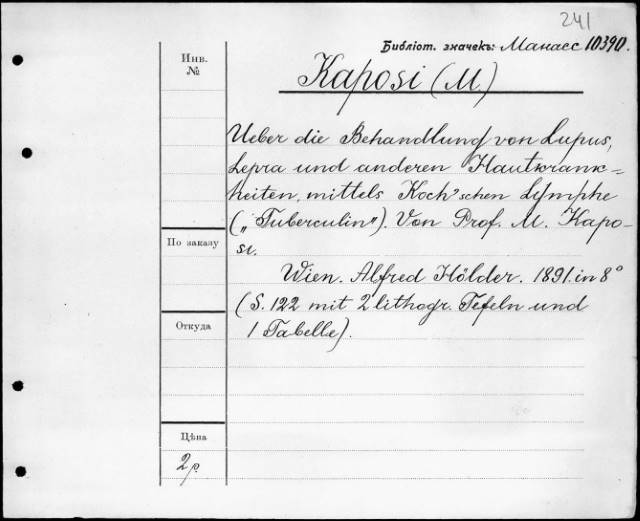 241
Библіот. значекъ: Манасс 10390.
Инв.
№
Kaposi (M)
Ueber die Behandlung von Lupus,
Lepra und anderen Hautkrank=
heiten, mittels Koch'schen Lymphe
(„Tuberculin"). Von Prof. M. Kapo-
si.
По заказу
Wien. Alfred Hölder. 1891. in 8°
(S. 122 mit 2 lithogr. Tefeln und
1 Tabelle).
Откуда
Цѣна
2 р.